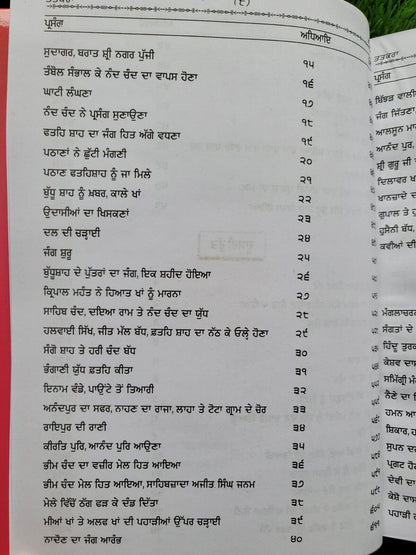 ਤਤਕਰਾ (੯)
ਪ੍ਰਸੰਗ ਅਧਿਆਇ
ਸੁਦਾਗਰ, ਬਰਾਤ ਸ਼੍ਰੀ ਨਗਰ ਪੁੱਜੀ ੧੫
ਤੰਬੋਲ ਸੰਭਾਲ ਕੇ ਨੰਦ ਚੰਦ ਦਾ ਵਾਪਸ ਹੋਣਾ ੧੬
ਘਾਟੀ ਲੰਘਣਾ ੧੭
ਨੰਦ ਚੰਦ ਨੇ ਪ੍ਰਸੰਗ ਸੁਣਾਉਣਾ ੧੮
ਫਤਹਿ ਸ਼ਾਹ ਦਾ ਜੰਗ ਹਿਤ ਅੱਗੇ ਵਧਣਾ ੧੯
ਪਠਾਣਾਂ ਨੇ ਛੁੱਟੀ ਮੰਗਣੀ ੨੦
ਪਠਾਣ ਫਤਹਿਸ਼ਾਹ ਨੂੰ ਜਾ ਮਿਲੇ ੨੧
ਬੁੱਧੂ ਸ਼ਾਹ ਨੂੰ ਖ਼ਬਰ, ਕਾਲੇ ਖਾਂ ੨੨
ਉਦਾਸੀਆਂ ਦਾ ਖਿਸਕਣਾਂ ੨੩
ਦਲ ਦੀ ਚੜ੍ਹਾਈ ੨੪
ਜੰਗ ਸ਼ੁਰੂ ੨੫
ਬੁੱਧੂਸ਼ਾਹ ਦੇ ਪੁੱਤਰਾਂ ਦਾ ਜੰਗ, ਇਕ ਸ਼ਹੀਦ ਹੋਇਆ ੨੬
ਕ੍ਰਿਪਾਲ ਮਹੰਤ ਨੇ ਹਿਆਤ ਖਾਂ ਨੂੰ ਮਾਰਨਾ ੨੭
ਸਾਹਿਬ ਚੰਦ, ਦਇਆ ਰਾਮ ਤੇ ਨੰਦ ਚੰਦ ਦਾ ਯੁੱਧ ੨੮
ਹਲਵਾਈ ਸਿੱਖ, ਜੀਤ ਮੱਲ ਬੱਧ, ਫ਼ਤਹਿ ਸ਼ਾਹ ਦਾ ਨੱਠ ਕੇ ਓਲ੍ਹੇ ਹੋਣਾ ੨੯
ਸੰਗੋ ਸ਼ਾਹ ਤੇ ਹਰੀ ਚੰਦ ਬੱਧ ੩੦
ਭੰਗਾਣੀ ਯੁੱਧ ਫ਼ਤਹਿ ਕੀਤਾ ੩੧
ਇਨਾਮ ਵੰਡੇ, ਪਾਉਂਟੇ ਤੋਂ ਤਿਆਰੀ ੩੨
ਅਨੰਦਪੁਰ ਦਾ ਸਫਰ, ਨਾਹਣ ਦਾ ਰਾਜਾ, ਲਾਹਾ ਤੇ ਟੋਟਾ ਗ੍ਰਾਮ ਦੇ ਚੋਰ ੩੩
ਰਾਇਪੁਰ ਦੀ ਰਾਣੀ ੩੪
ਕੀਰਤਿ ਪੁਰਿ, ਆਨੰਦ ਪੁਰਿ ਆਉਣਾ ੩੫
ਭੀਮ ਚੰਦ ਦਾ ਵਜ਼ੀਰ ਮੇਲ ਹਿਤ ਆਇਆ ੩੬
ਭੀਮ ਚੰਦ ਮੇਲ ਹਿਤ ਆਇਆ, ਸਾਹਿਬਜ਼ਾਦਾ ਅਜੀਤ ਸਿੰਘ ਜਨਮ ੩੭
ਮੇਲੇ ਵਿੱਚੋਂ ਠੱਗ ਫੜ ਕੇ ਦੰਡ ਦਿੱਤਾ ੩੮
ਮੀਆਂ ਖਾਂ ਤੇ ਅਲਫ ਖਾਂ ਦੀ ਪਹਾੜੀਆਂ ਉੱਪਰ ਚੜ੍ਹਾਈ ੩੯
ਨਾਦੌਣ ਦਾ ਜੰਗ ਆਰੰਭ ੪੦
ਤਤਕਰਾ
ਪ੍ਰਸੰਗ
ਬਿੱਝੜ ਵਾਲੀ
ਜੰਗ ਜਿੱਤਣਾ,
ਆਲਸੂਨ ਮਾ
ਆਨੰਦ ਪੁਰ,
ਸ਼੍ਰੀ ਗੁਰੂ ਜੀ
ਦਿਲਾਵਰ ਖਾਂ
ਖਾਨਜ਼ਾਦੇ ਦਾ
ਗੁਪਾਲ ਤੇ ਹੁ
ਹੁਸੈਨੀ ਬੱਧ,
ਕਵੀਆਂ ਦੀ
ਮੰਗਲਾਚਰਣ
ਸੰਗਤਾਂ ਦੇ
ਹਿੰਦੂ ਤੁਰਕ
ਕੇਸ਼ਵ ਦਾਸ
ਸਮਿੱਗ੍ਰੀ ਮੰ
ਨੈਣੇ ਦਾ ਇ
ਹਮਨ ਆ
ਸ਼ਿਕਾਰ, ਹ
ਸੁਪਨ ਦਰ
ਪ੍ਰਗਟ ਹੋ
ਦੇਵੀ ਦਾ
ਕੇਸ਼ੋ ਦਾਸ
ਪਹਾੜੀ